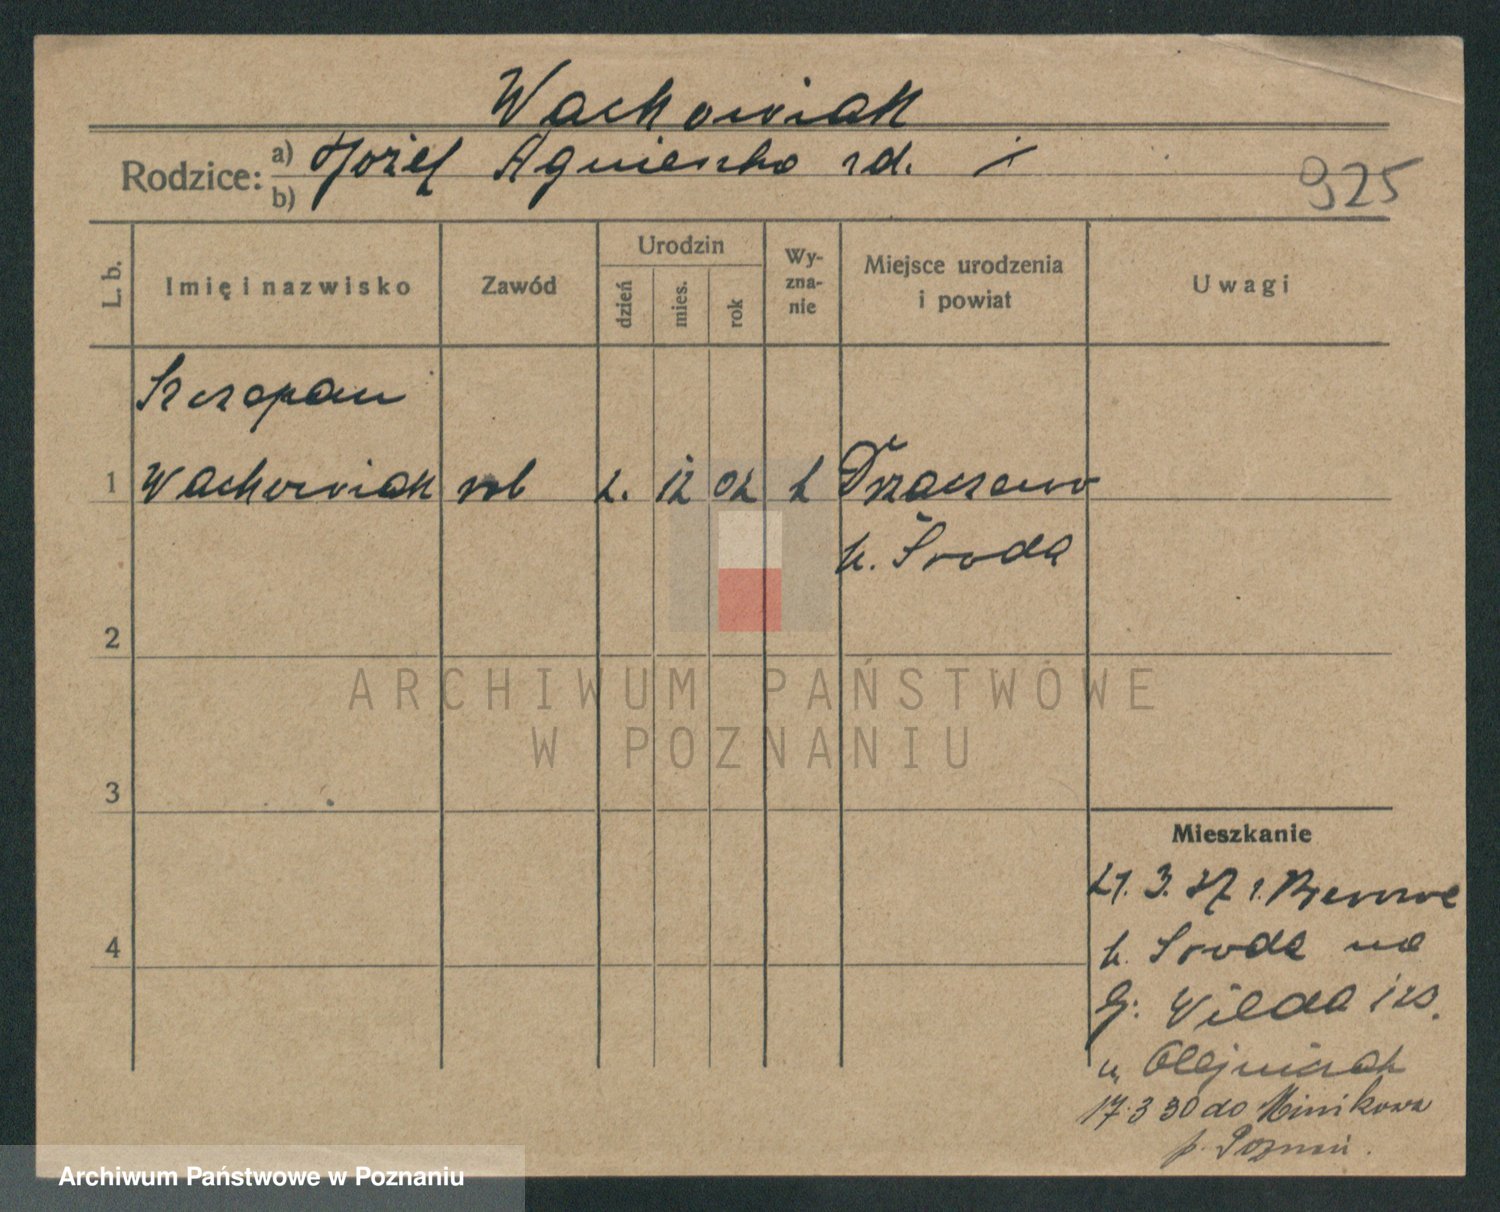 Wachowiak
Rodzice: a) Józef Agnieszka rd. i
b)
925
L. b.
Imię i nazwisko
Zawód
Urodzin
dzień
mies.
rok
Wy-
zna-
nie
Miejsce urodzenia
i powiat
Uwagi
Szczepan
1 Wachowiak rob 2. 12 02 k
p. Środa
2
3
4
Mieszkanie
21. 3. 27 z
p. Środa na
G. Wilda 123.
u. Olejniczak
17.3 30 do Minikowa
p. Poznań.
ARCHIWUM PAŃSTWOWE
W POZNANIU
Archiwum Państwowe w Poznaniu